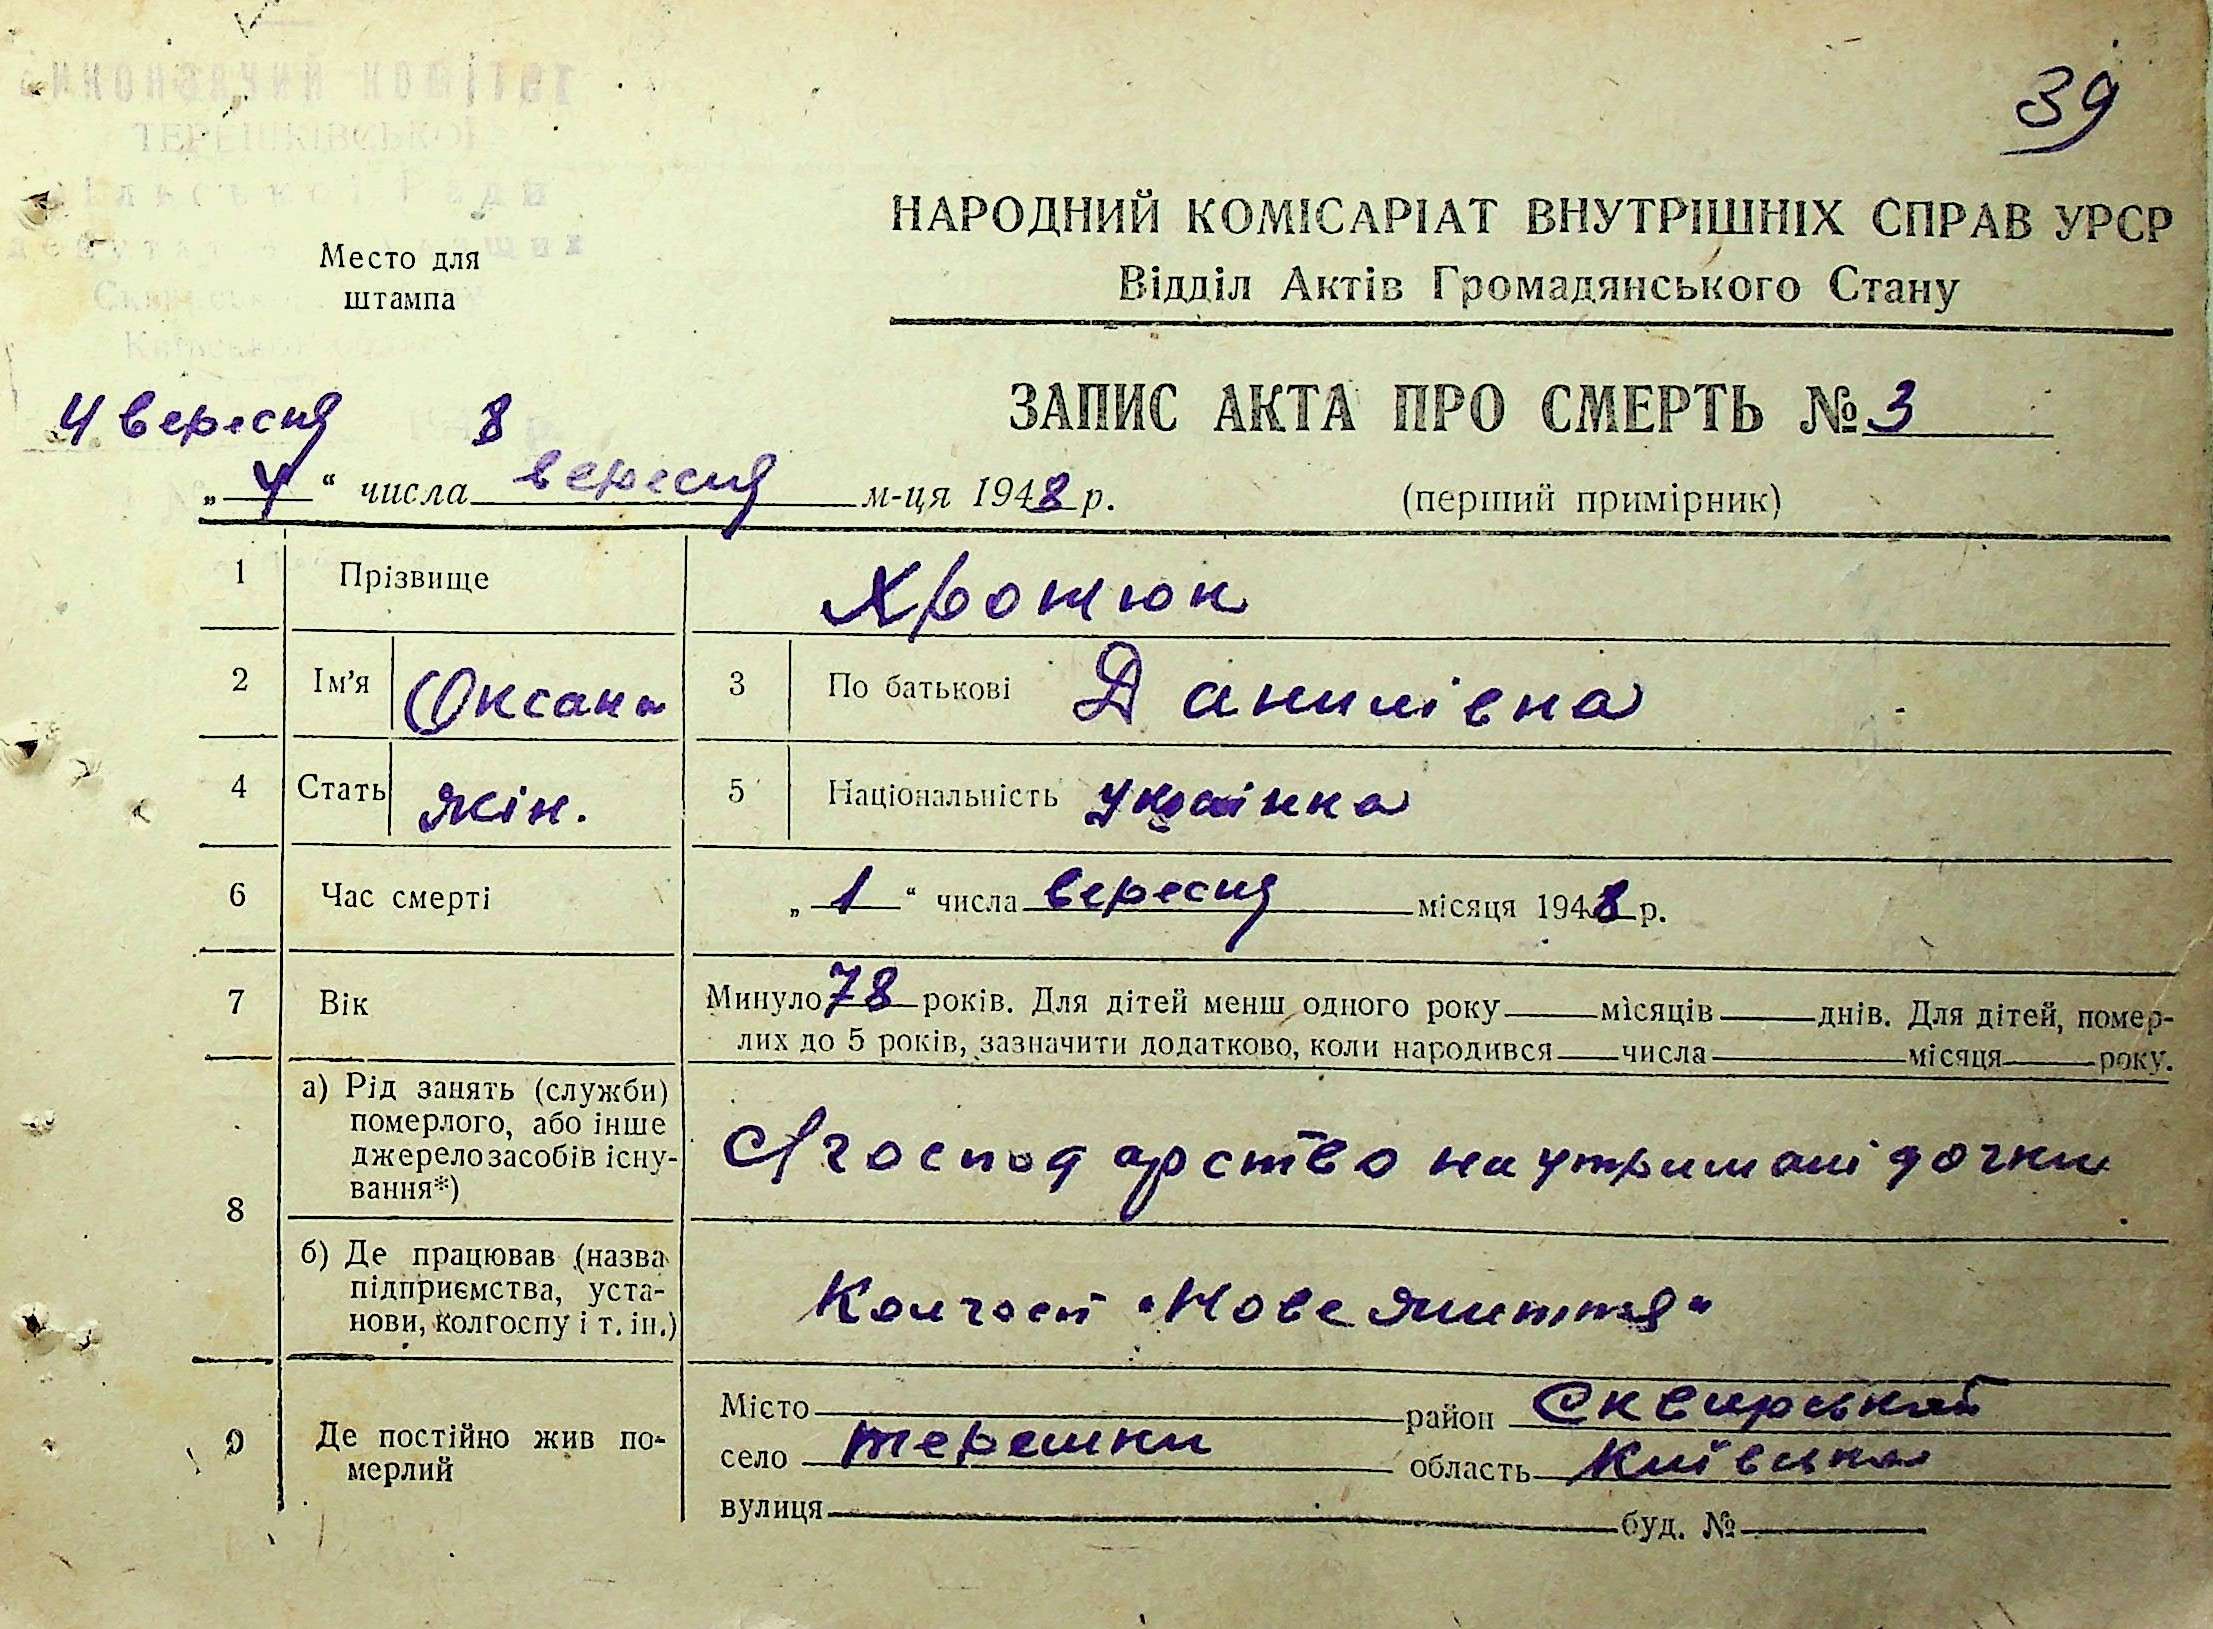 39
ВИКОНАВЧИЙ КОМІТЕТ
ТЕРЕШКІВСЬКОЇ
Сільської Ради
депутатів
Київської
Место для
штампа
НАРОДНИЙ КОМІСАРІАТ ВНУТРІШНІХ СПРАВ УРСР
Відділ Актів Громадянського Стану
4 вересня 8
ЗАПИС АКТА ПРО СМЕРТЬ № 3
„ 4 “ числа вересня м-ця 1948 р. (перший примірник)
1 Прізвище Хротюк
2 Ім'я Оксана 3 По батькові Данилівна
4 Стать жін. 5 Національність українка
6 Час смерті „ 1 “ числа вересня місяця 1948 р.
7 Вік Минуло 78 років. Для дітей менш одного року місяців днів. Для дітей, помер-
лих до 5 років, зазначити додатково, коли народився числа місяця року.
8 а) Рід занять (служби)
померлого, або інше
джерело засобів існу-
вання*)
С/господарство на утримані дочки
б) Де працював (назва
підприємства, уста-
нови, колгоспу і т. ін.)
Колгосп "Нове життя"
9 Де постійно жив по-
мерлий
Місто район Сквирський
село Терешки область Київська
вулиця буд. №